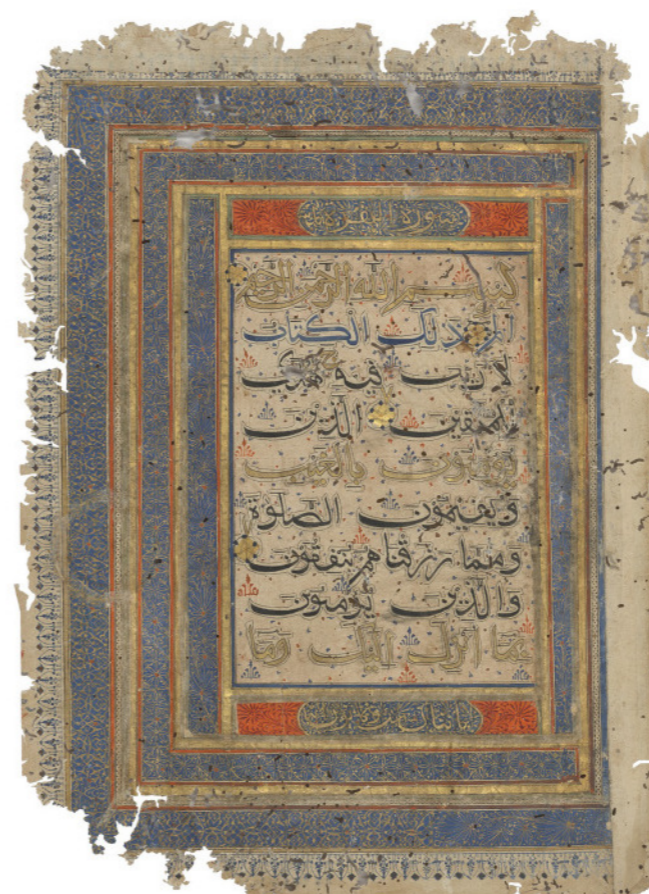 سورة البقرة
بسم الله الرحمن الرحيم
الم ذلك الكتاب
لا ريب فيه هدى
للمتقين الذين
يؤمنون بالغيب
ويقيمون الصلوة
ومما رزقناهم ينفقون
والذين يؤمنون
بما انزل اليك وما